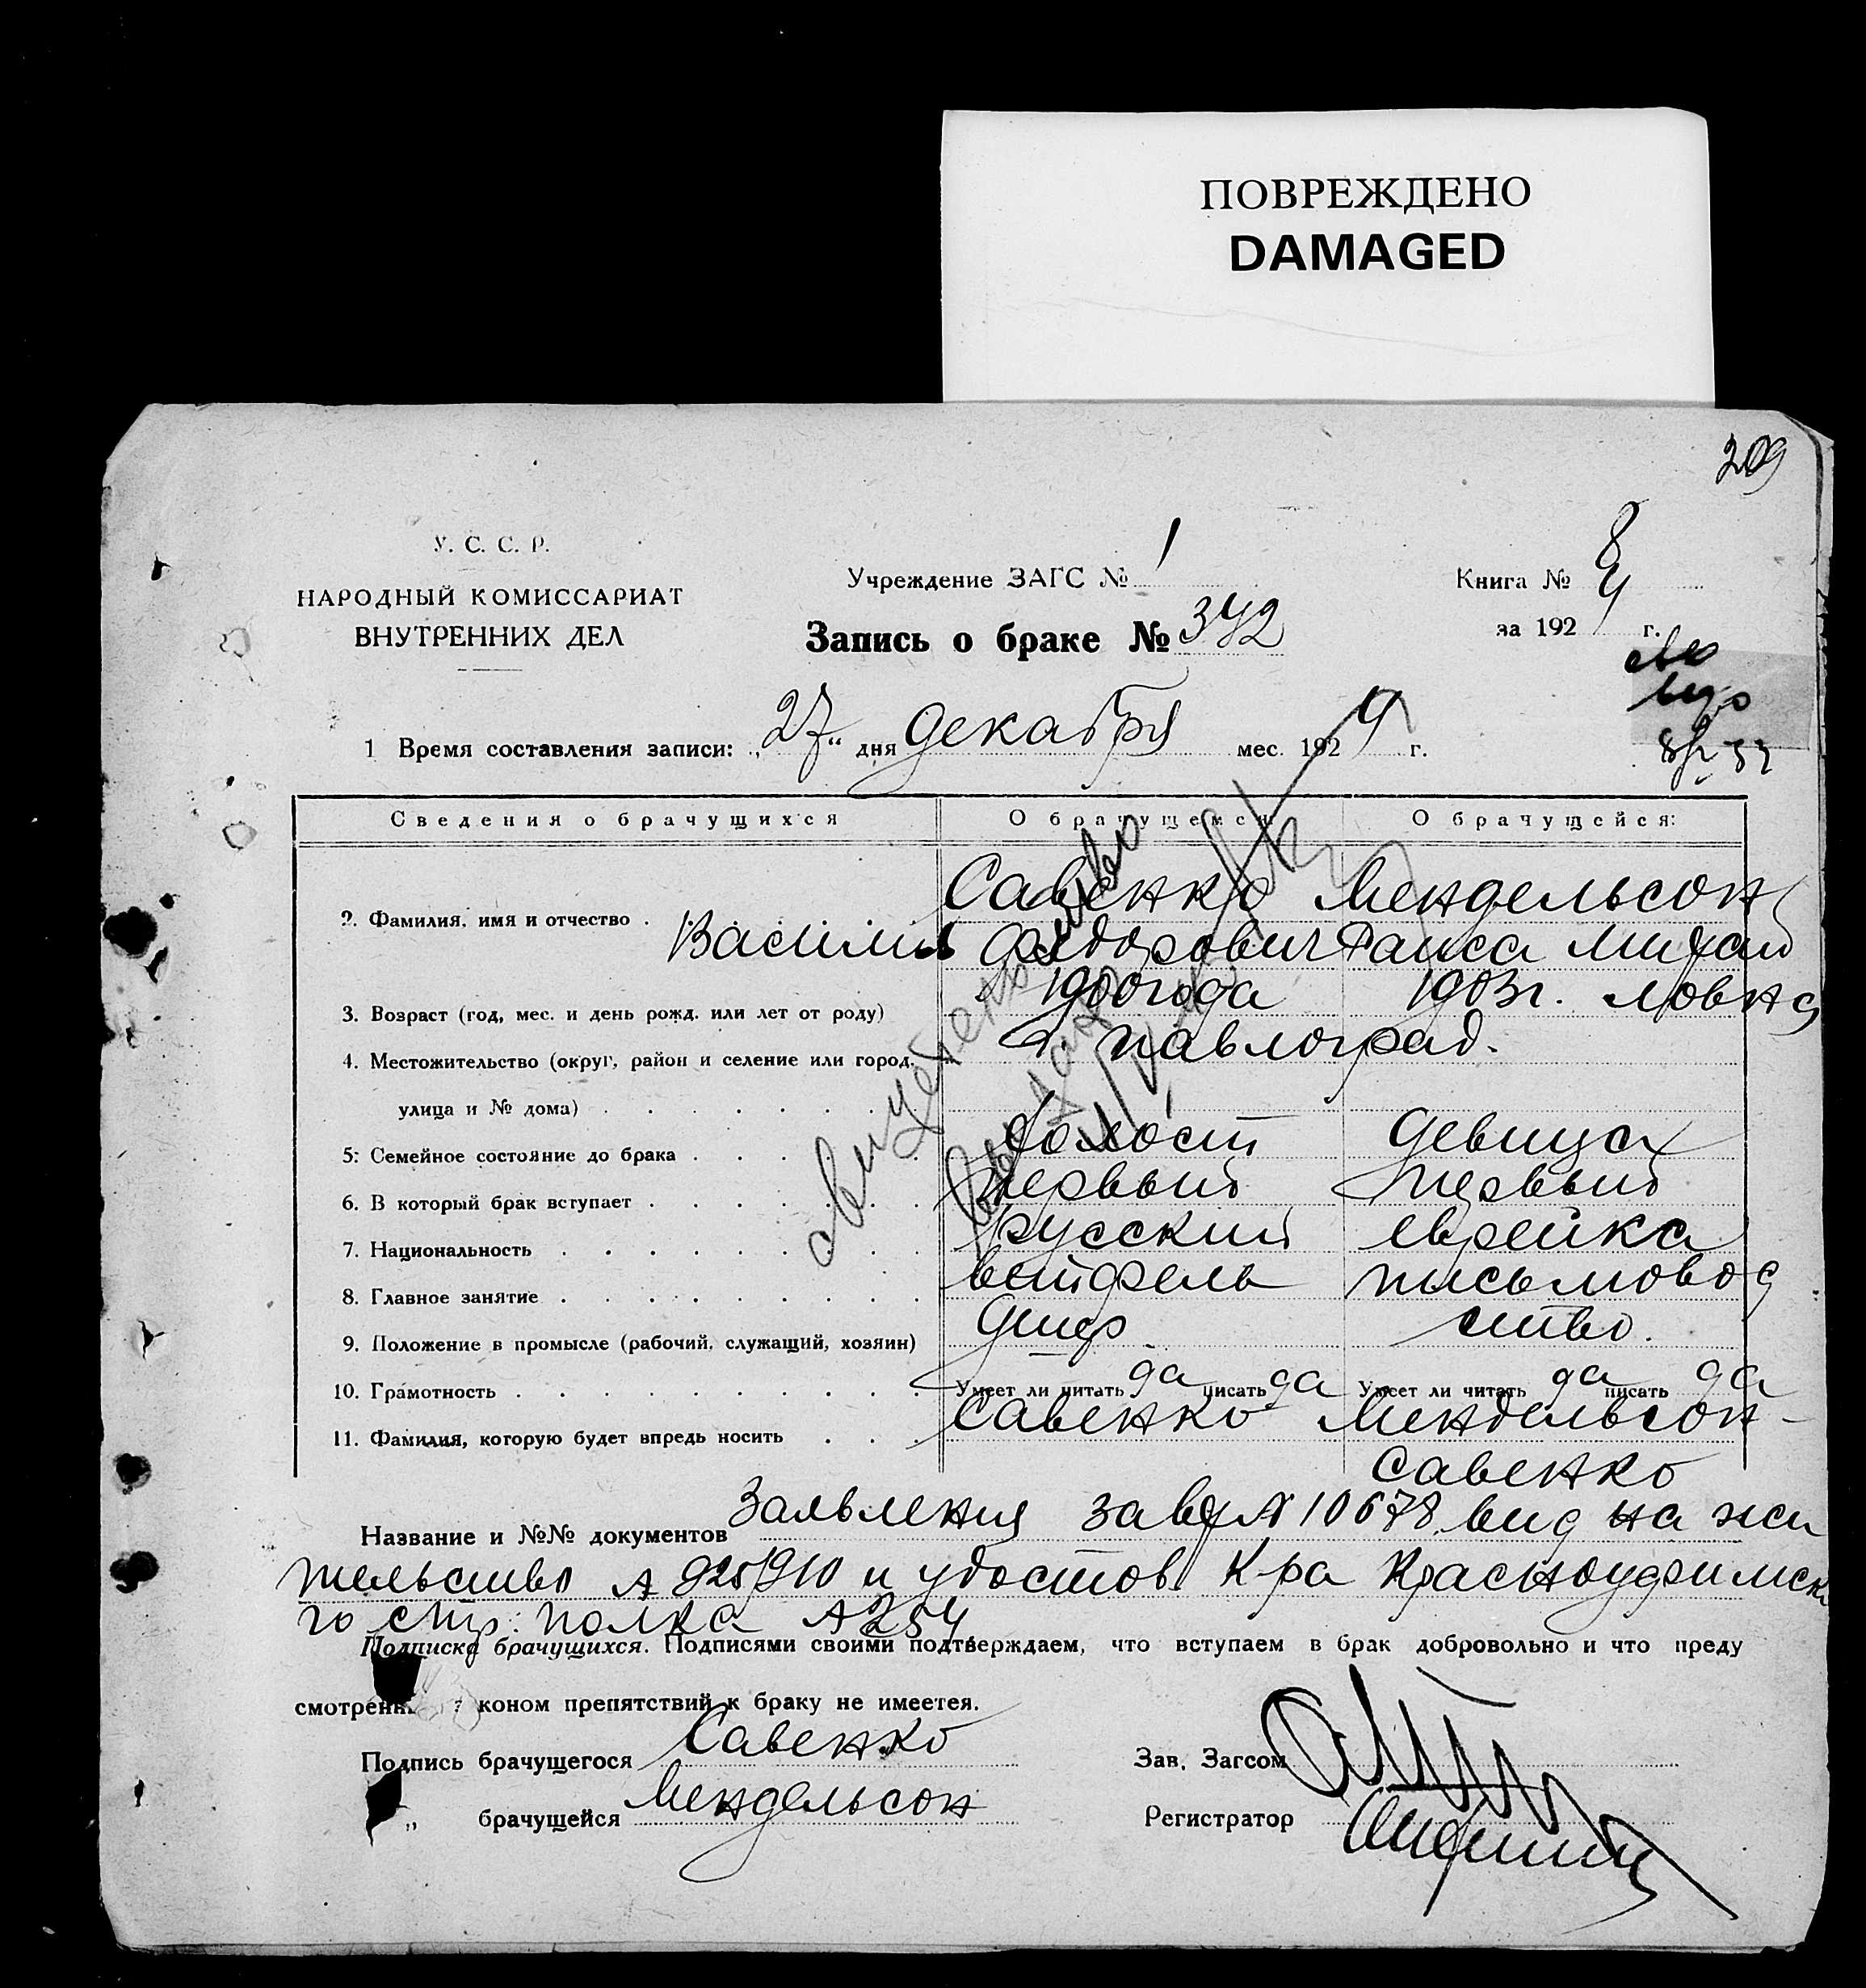 ПОВРЕЖДЕНО
DAMAGED
209
У. С. С. Р.
НАРОДНЫЙ КОМИССАРИАТ
ВНУТРЕННИХ ДЕЛ
Учреждение ЗАГС № 1
Запись о браке № 342
Книга № 8
за 1924 г.
1 Время составления записи: „27“ дня декабря мес. 1924 г.
Сведения о брачущихся
О брачущемся:
О брачущейся:
2. Фамилия, имя и отчество . Савенко Мендельсон
Василий Федорович Раиса Михай
ловна
3. Возраст (год, мес. и день рожд. или лет от роду) 1900 года 1903 г.
4. Местожительство (округ, район и селение или город, г. Павлоград.
улица и № дома)
5: Семейное состояние до брака . . . холост девица
6. В который брак вступает . . . первый первый
7. Национальность . . . русский еврейка
8. Главное занятие . . . письмовод
9. Положение в промысле (рабочий, служащий, хозяин) ство.
10. Грамотность . . . Умеет ли читать да писать да Умеет ли читать да писать да
11. Фамилия, которую будет впредь носить . . . Савенко Мендельсон-
Савенко
свидетельство
Название и №№ документов Заявления за вх № 10678 вид на жи
тельство № 925/910 и удостов. К-ра Красноуфимск
го стр. полка № 254
Подписка брачущихся. Подписями своими подтверждаем, что вступаем в брак добровольно и что преду
смотренн коном препятствий к браку не имеетея.
Подпись брачущегося Савенко
Зав. Загсом
„ брачущейся Мендельсон
Регистратор